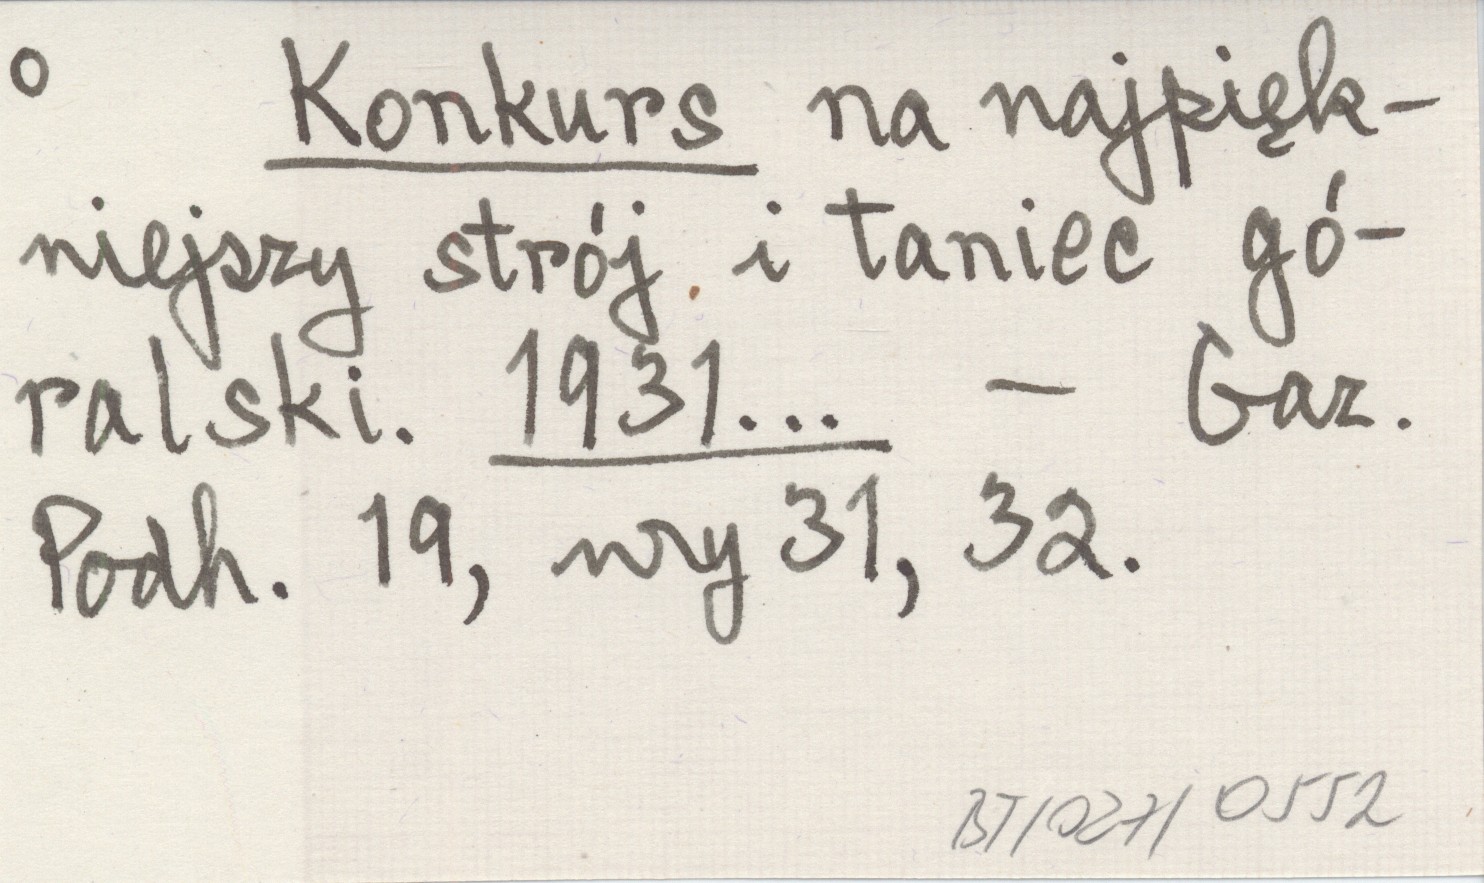 o Konkurs na najpięk-
niejszy strój i taniec gó-
ralski. 1931... – Gaz.
Podh. 19, nry 31, 32.
BT/027/0552